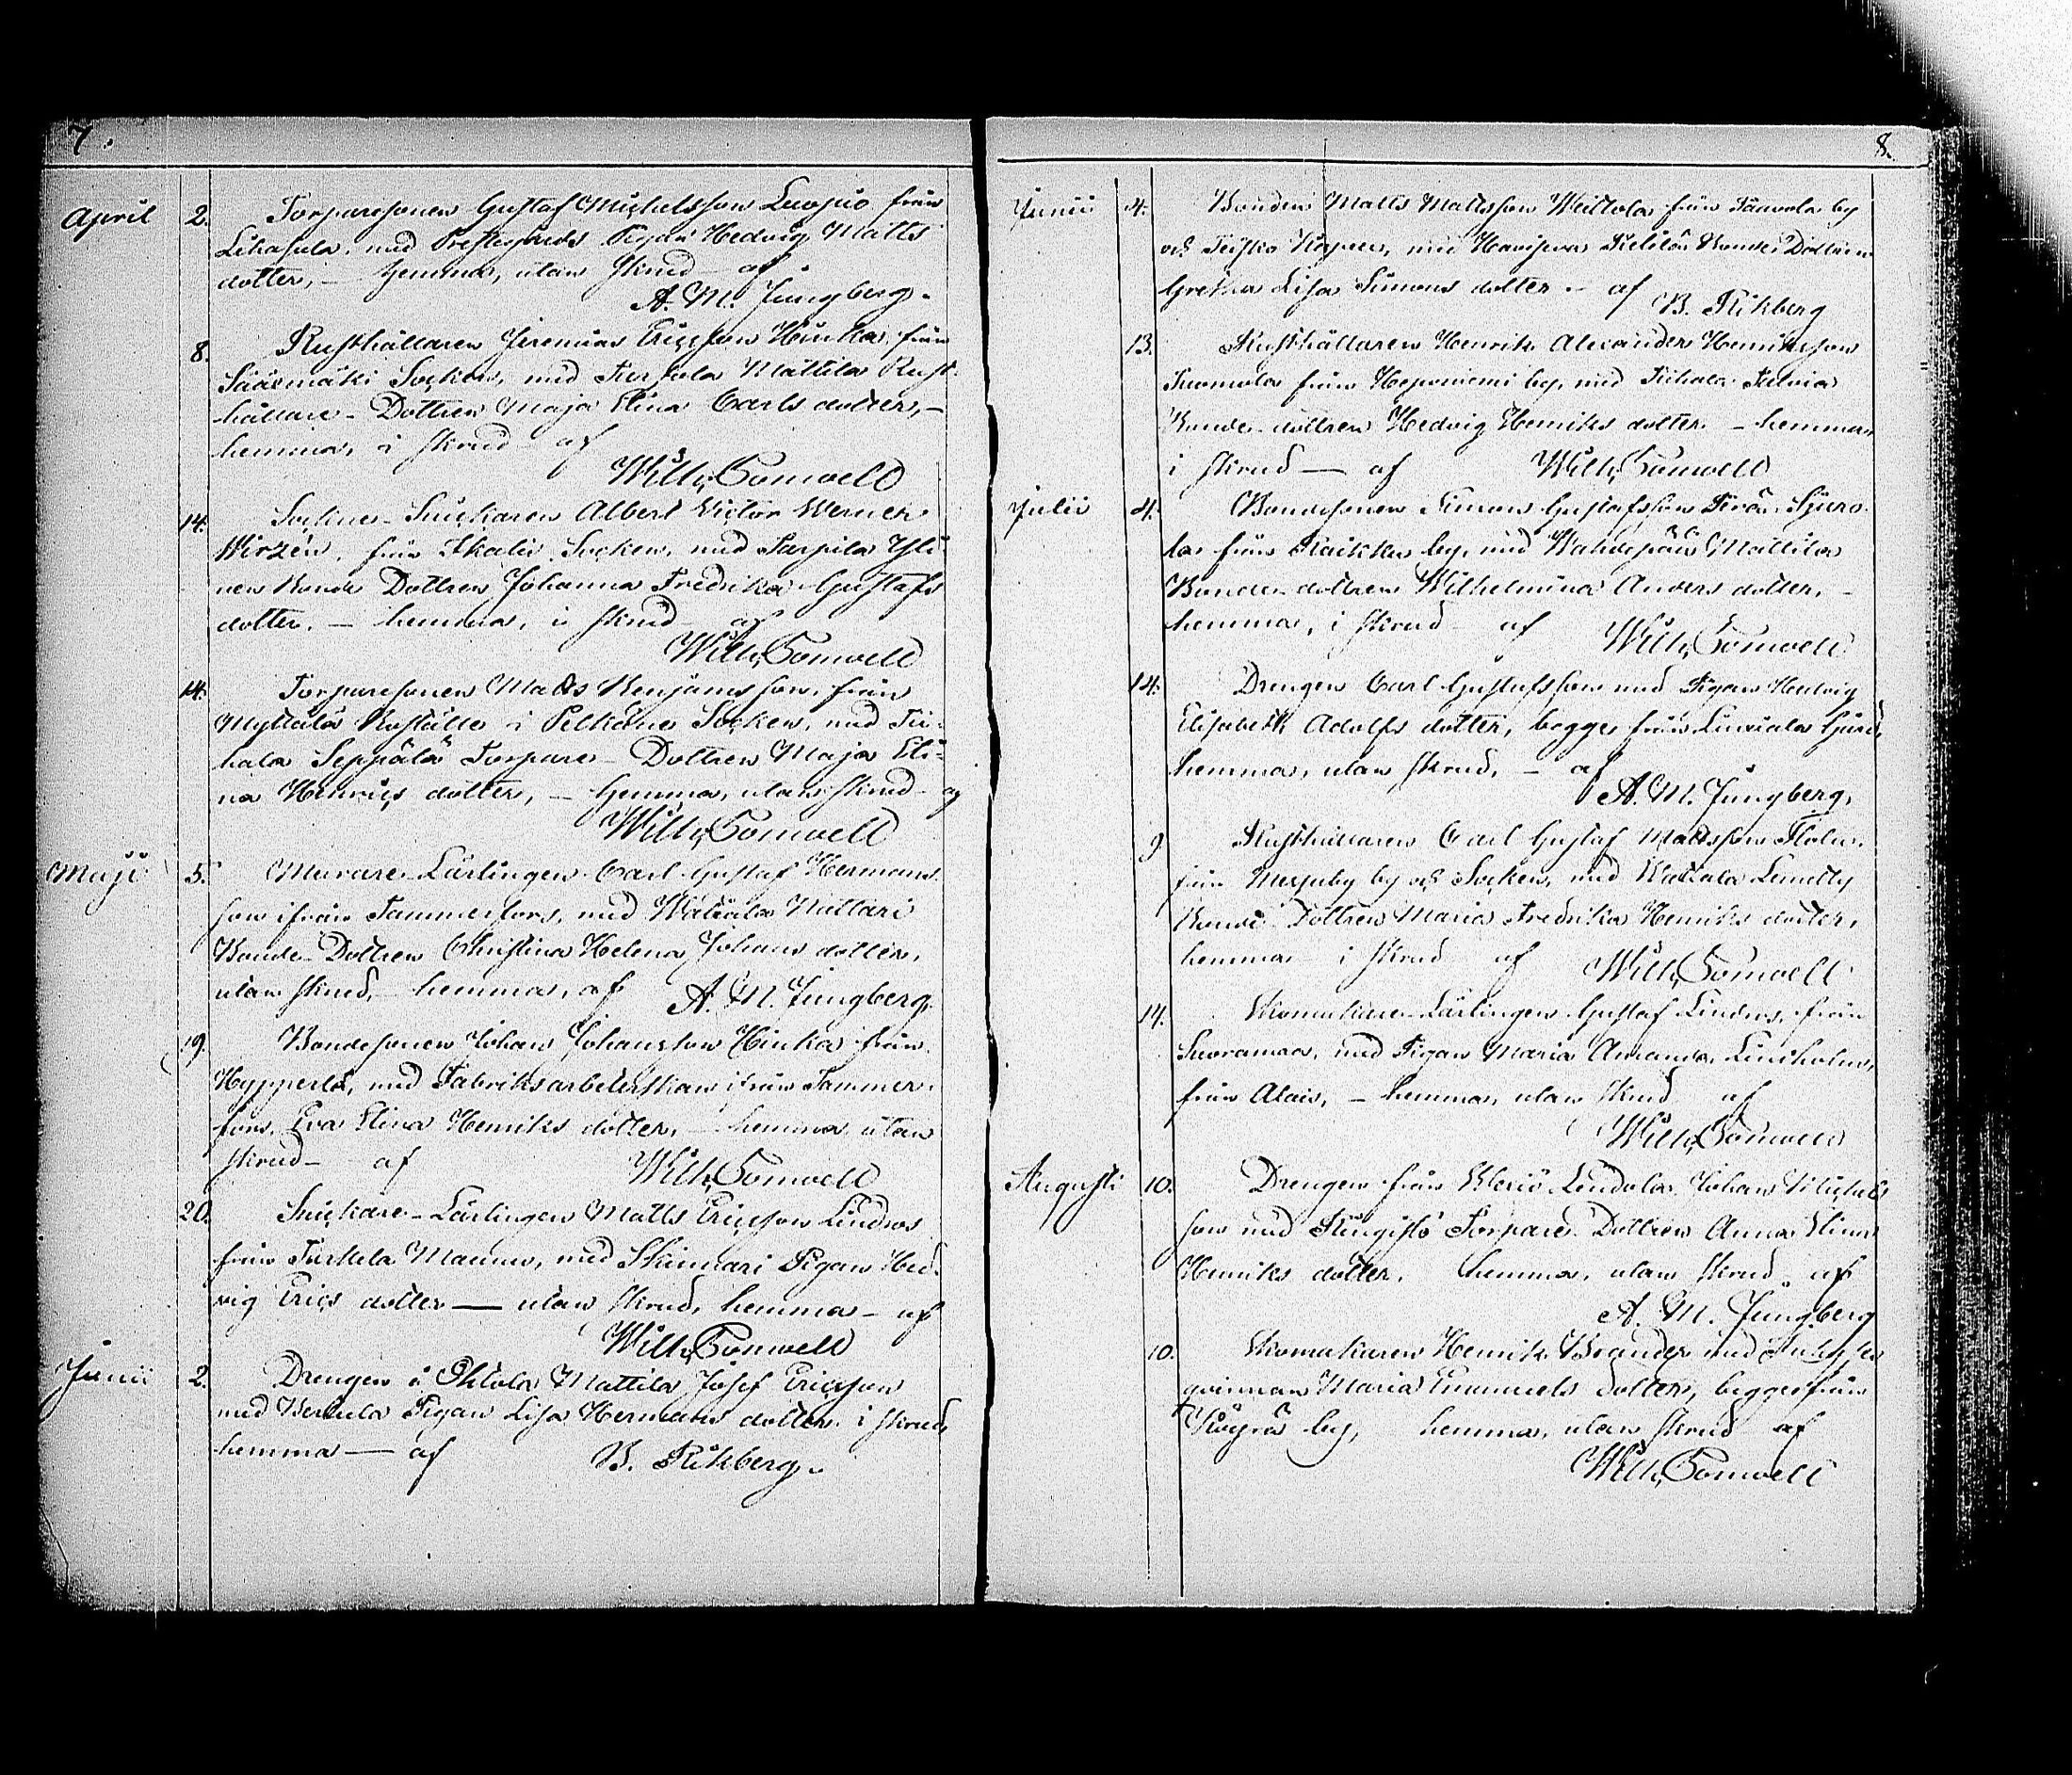 7.
April 2. Torparesonen Gustaf Michelsson Luosuo från
Lihasula, med Prestegårds Pigan Hedvig Matts
dotter, – hemma, utan skrud af
A. M. Jungberg.
8. Rusthållaren Jeremias Ericsson Huikka från
Sääxmäki Socken, med Turkula Mattila Rust-
hållare-Dottren Maja Elina Carls dotter, –
hemma, i skrud af
Wilh, Bonwell
14. Sockne-Snickaren Albert Victor Werner
Wirzén, från Ikalis Socken, med Sarpila Yli
nen Bonde Dottren Johanna Fredrika Gustafs
dotter. – hemma, i skrud af
Wilh, Bonwell
14. Torparesonen Matts Benjamsson, från
Myttälä Rusthålle i Pelkäne Socken, med Tii-
hala Seppälä Torpare-Dottren Maja Eli-
na Henrics dotter, – hemma, utan skrud af
Wilh, Bonwell
Maji 5. Murare-Lärlingen Carl Gustaf Hermans
son ifrån Tammerfors, med Wätiälä Nattari
Bonde-Dottren Christina Helena Johans dotter,
utan skrud, – hemma, af A. M. Jungberg.
19. Bondesonen Johan Johansson Hinka från
Hypperlä, med Fabriksarbeterskan ifrån Tammer-
fors, Eva Elina Henriks dotter, – hemma utan
skrud – af
Wilh, Bonwell
20. Snickare-Lärlingen Matts Ericsson Lindros
från Turkela Maunu, med Skinnari Pigan Hed-
vig Erics dotter — utan skrud, hemma – af
Wilh, Bonwell
Junii 2. Drengen i Ohtola Mattila Josef Ericsson
med Bertula Pigan Lisa Hermans dotter i skrud,
hemma — af B. Rikberg.
8.
Junii 4. Bonden Matts Mattsson Weittola från Taavola by
och Teisko Kapell, med Havisevä Pietilä Bonde Dottren
Gretha Lisa Simons dotter. – af
B. Rikberg
13. Rusthållaren Henrik Alexander Henriksson
Tuomola från Heponiemi by, med Tiihala
Bonde-dottren Hedvig Henriks dotter. – hemma,
i skrud — af Wilh, Bonwell
Julii 4. Bondesonen Simon Gustafsson
la från Raikku by, med Wähäpää Mattila
Bonde-dottren Wilhelmina Anders dotter, –
hemma, i skrud – af Wilh, Bonwell
14. Drengen Carl Gustafsson med Pigan Hedvig
Elisabeth Adolfs dotter, begge från Liuxiala Gård,
hemma, utan skrud, – af
A. M. Jungberg,
9 Rusthållaren Carl Gustaf Mattsson
från Mesuby by och Socken, med Wätiälä
Bonde-Dottren Maria Fredrika Henriks dotter,
hemma i skrud af Wilh, Bonwell
14. Skomakare-Lärlingen Gustaf Lindros, från
Suoramaa, med Pigan Maria Amanda Lindholm,
från Alais, – hemma, utan skrud af
Wilh, Bonwell
Augusti 10. Drengen från Lindola Johan Michels
son med Torpare-Dottren Anna Elina
Henriks dotter, hemma, utan skrud, af
A. M. Jungberg
10. Skomakaren Henrik Brander med
qvinnan Maria Emanuels dotter, begge från
by, hemma, utan skrud af
Wilh, Bonwell